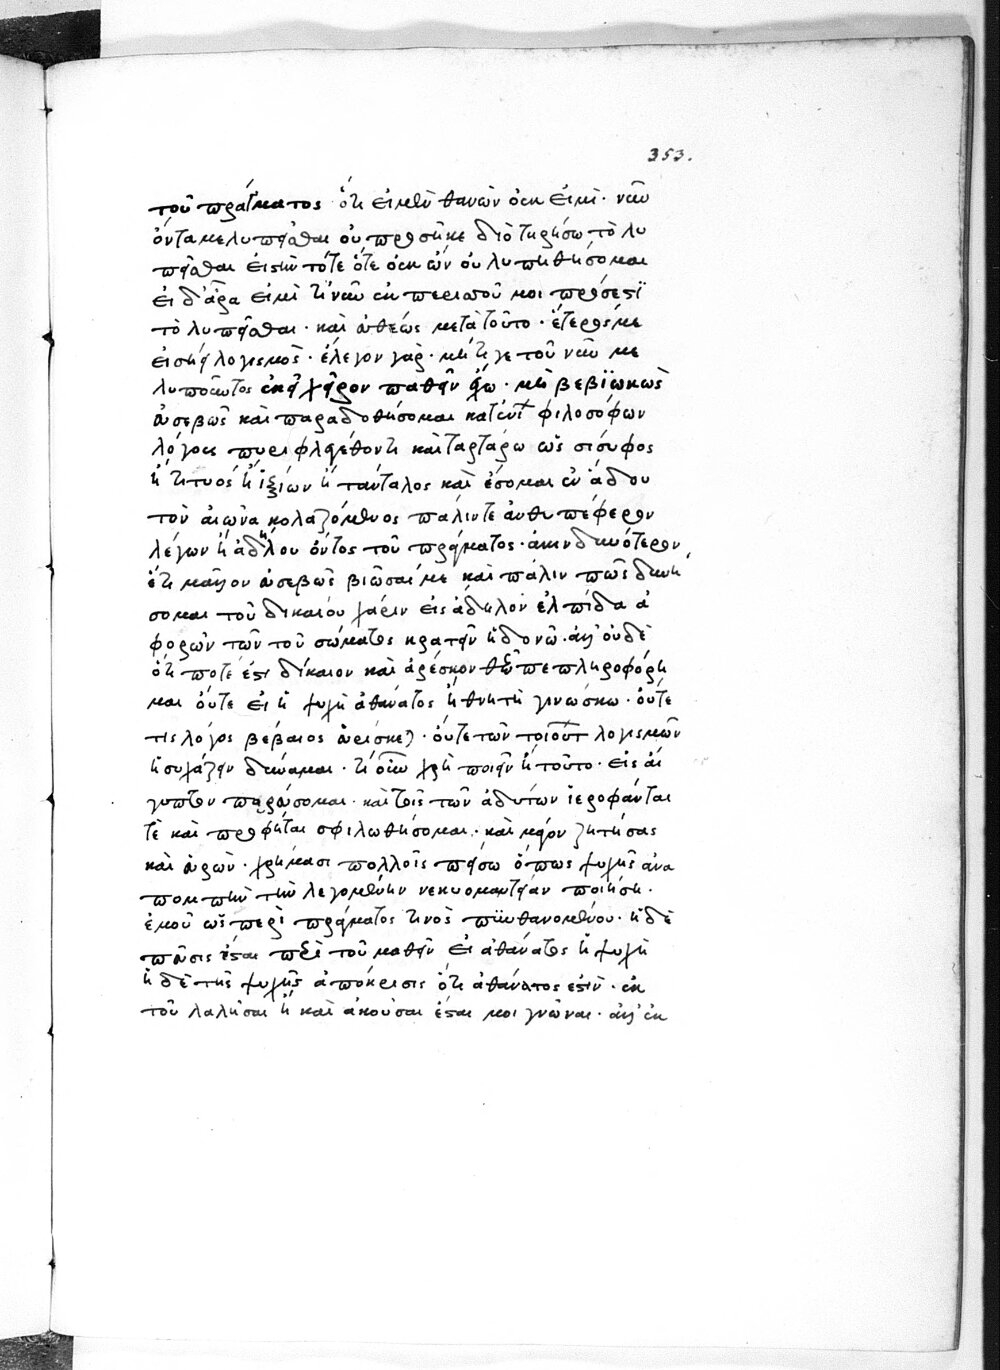 353.
τοῦ πράγματος ὅτι εἰ μὲν θανὼν οὐκ εἰμὶ· νῦν
ὄντα με λυπεῖσθαι οὐ προσῆκε διὸ τηρήσω τὸ λυ
πεῖσθαι εἰς τὴν τότε ὅτε οὐκ ὢν οὐ λυπηθήσομαι
εἰ δ' ἄρα εἰμὶ τί νῦν ἐκ περιττοῦ μοι πρόσεστι
τὸ λυπεῖσθαι· καὶ εὐθέως μετὰ τοῦτο· ἕτερός με
εἰσῄει λογισμὸς· ἔλεγον γὰρ· μή τί γε τοῦ νῦν με
λυποῦντος ἐκεῖ χεῖρον παθεῖν ἔχω· μὴ βεβιωκὼς
εὐσεβῶς καὶ παραδοθήσομαι κατ' ἐνίων φιλοσόφων
λόγους πυριφλεγέθοντι καὶ ταρτάρω ὡς σίσυφος
ἢ τιτυός ἢ ἰξίων ἢ τάνταλος καὶ ἔσομαι ἐν ἅδου
τὸν αἰῶνα κολαζόμενος πάλιν τε ἀνθυπέφερον
λέγων ἢ ἀδήλου ὄντος τοῦ πράγματος· ἀκινδυνότερον
ἔτι μᾶλλον εὐσεβῶς βιῶσαί με καὶ πάλιν πῶς δυνή
σομαι τοῦ δικαίου χάριν εἰς ἄδηλον ἐλπίδα ἀ
φορῶν τῶν τοῦ σώματος κρατεῖν ἡδονῶν· ἀλλ' οὐδὲ
ὅτι ποτέ ἐστι δίκαιον καὶ ἀρέσκον θεῷ πεπληροφόρη
μαι οὔτε εἰ ἡ ψυχὴ ἀθάνατος ἢ θνητὴ γινώσκω· οὔτε
τις λόγος βέβαιος εὑρίσκεται· οὔτε τῶν τοιούτων λογισμῶν
ἡσυχάζειν δύναμαι· τί οὖν χρὴ ποιεῖν ἢ τοῦτο· εἰς αἴ
γυπτον πορεύσομαι· καὶ τοῖς τῶν ἀδύτων ἱεροφάνταις
τὲ καὶ προφήταις φιλωθήσομαι· καὶ μάγον ζητήσας
καὶ εὑρὼν· χρήμασι πολλοῖς πείσω ὅπως ψυχῆς ἀνα
πομπὴν τὴν λεγομένην νεκυομαντείαν ποιήσῃ·
ἐμοῦ ὡς περὶ πράγματος τινὸς πυνθανομένου· ἡ δὲ
πεῦσις ἔσται περὶ τοῦ μαθεῖν εἰ ἀθάνατος ἡ ψυχὴ
ἡ δὲ τῆς ψυχῆς ἀπόκρισις ὅτι ἀθάνατος ἐστὶν· ἐκ
τοῦ λαλῆσαι ἢ καὶ ἀκοῦσαι ἔσται μοι γνῶναι· ἀλλ' ἐκ